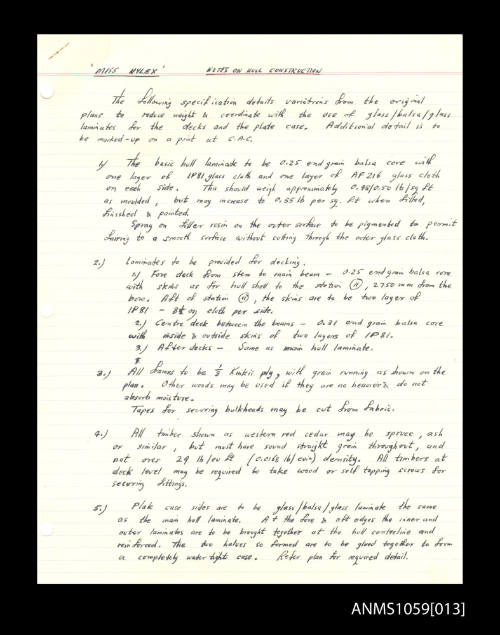 'MISS NYLEX' NOTES ON HULL CONSTRUCTION
The following specification details variations from the original
plans to reduce weight & coordinate with the use of glass/balsa/glass
laminates for the decks and the plate case. Additional detail is to
be marked-up on a print at C.A.C.
1) The basic hull laminate to be 0.25 end grain balsa core with
one layer of 1P81 glass cloth and one layer of AF216 glass cloth
on each side. This should weigh approximately 0.48/0.50 lb/sq ft
as moulded, but may increase to 0.55 lb per sq. ft when filled,
finished & painted.
Spray on filler resin on the outer surface to be pigmented to permit
fairing to a smooth surface without cutting through the outer glass cloth.
2.) Laminates to be provided for decking.
1) Fore deck from stem to main beam - 0.25 end grain balsa core
with skins as for hull shell to the station (11), 2750 mm from the
bow. Aft of station (11), the skins are to be two layer of
1P81 - on cloth per side.
2.) Centre deck between the beams - 0.31 end grain balsa core
with inside & outside skins of two layers of 1P81.
3.) After decks - Same as main hull laminate.
3.) All frames to be 1/8 Kauri ply, with grain running as shown on the
plan. Other woods may be used if they are no heavier & do not
absorb moisture.
Tapes for securing bulkheads may be cut from fabric.
4.) All timber shown as western red cedar may be spruce, ash
or similar, but must have sound straight grain throughout, and
not over 29 lb/cu ft (0.0168 lb/cuin) density. All timbers at
deck level may be required to take wood or self tapping screws for
securing fittings.
5.) Plate case sides are to be glass/balsa/glass laminate the same
as the main hull laminate. At the fore & aft edges the inner and
outer laminates are to be brought together at the hull centreline and
reinforced. The two halves so formed are to be glued together to form
a completely water tight case. Refer plan for required detail.
ANMS1059[013]